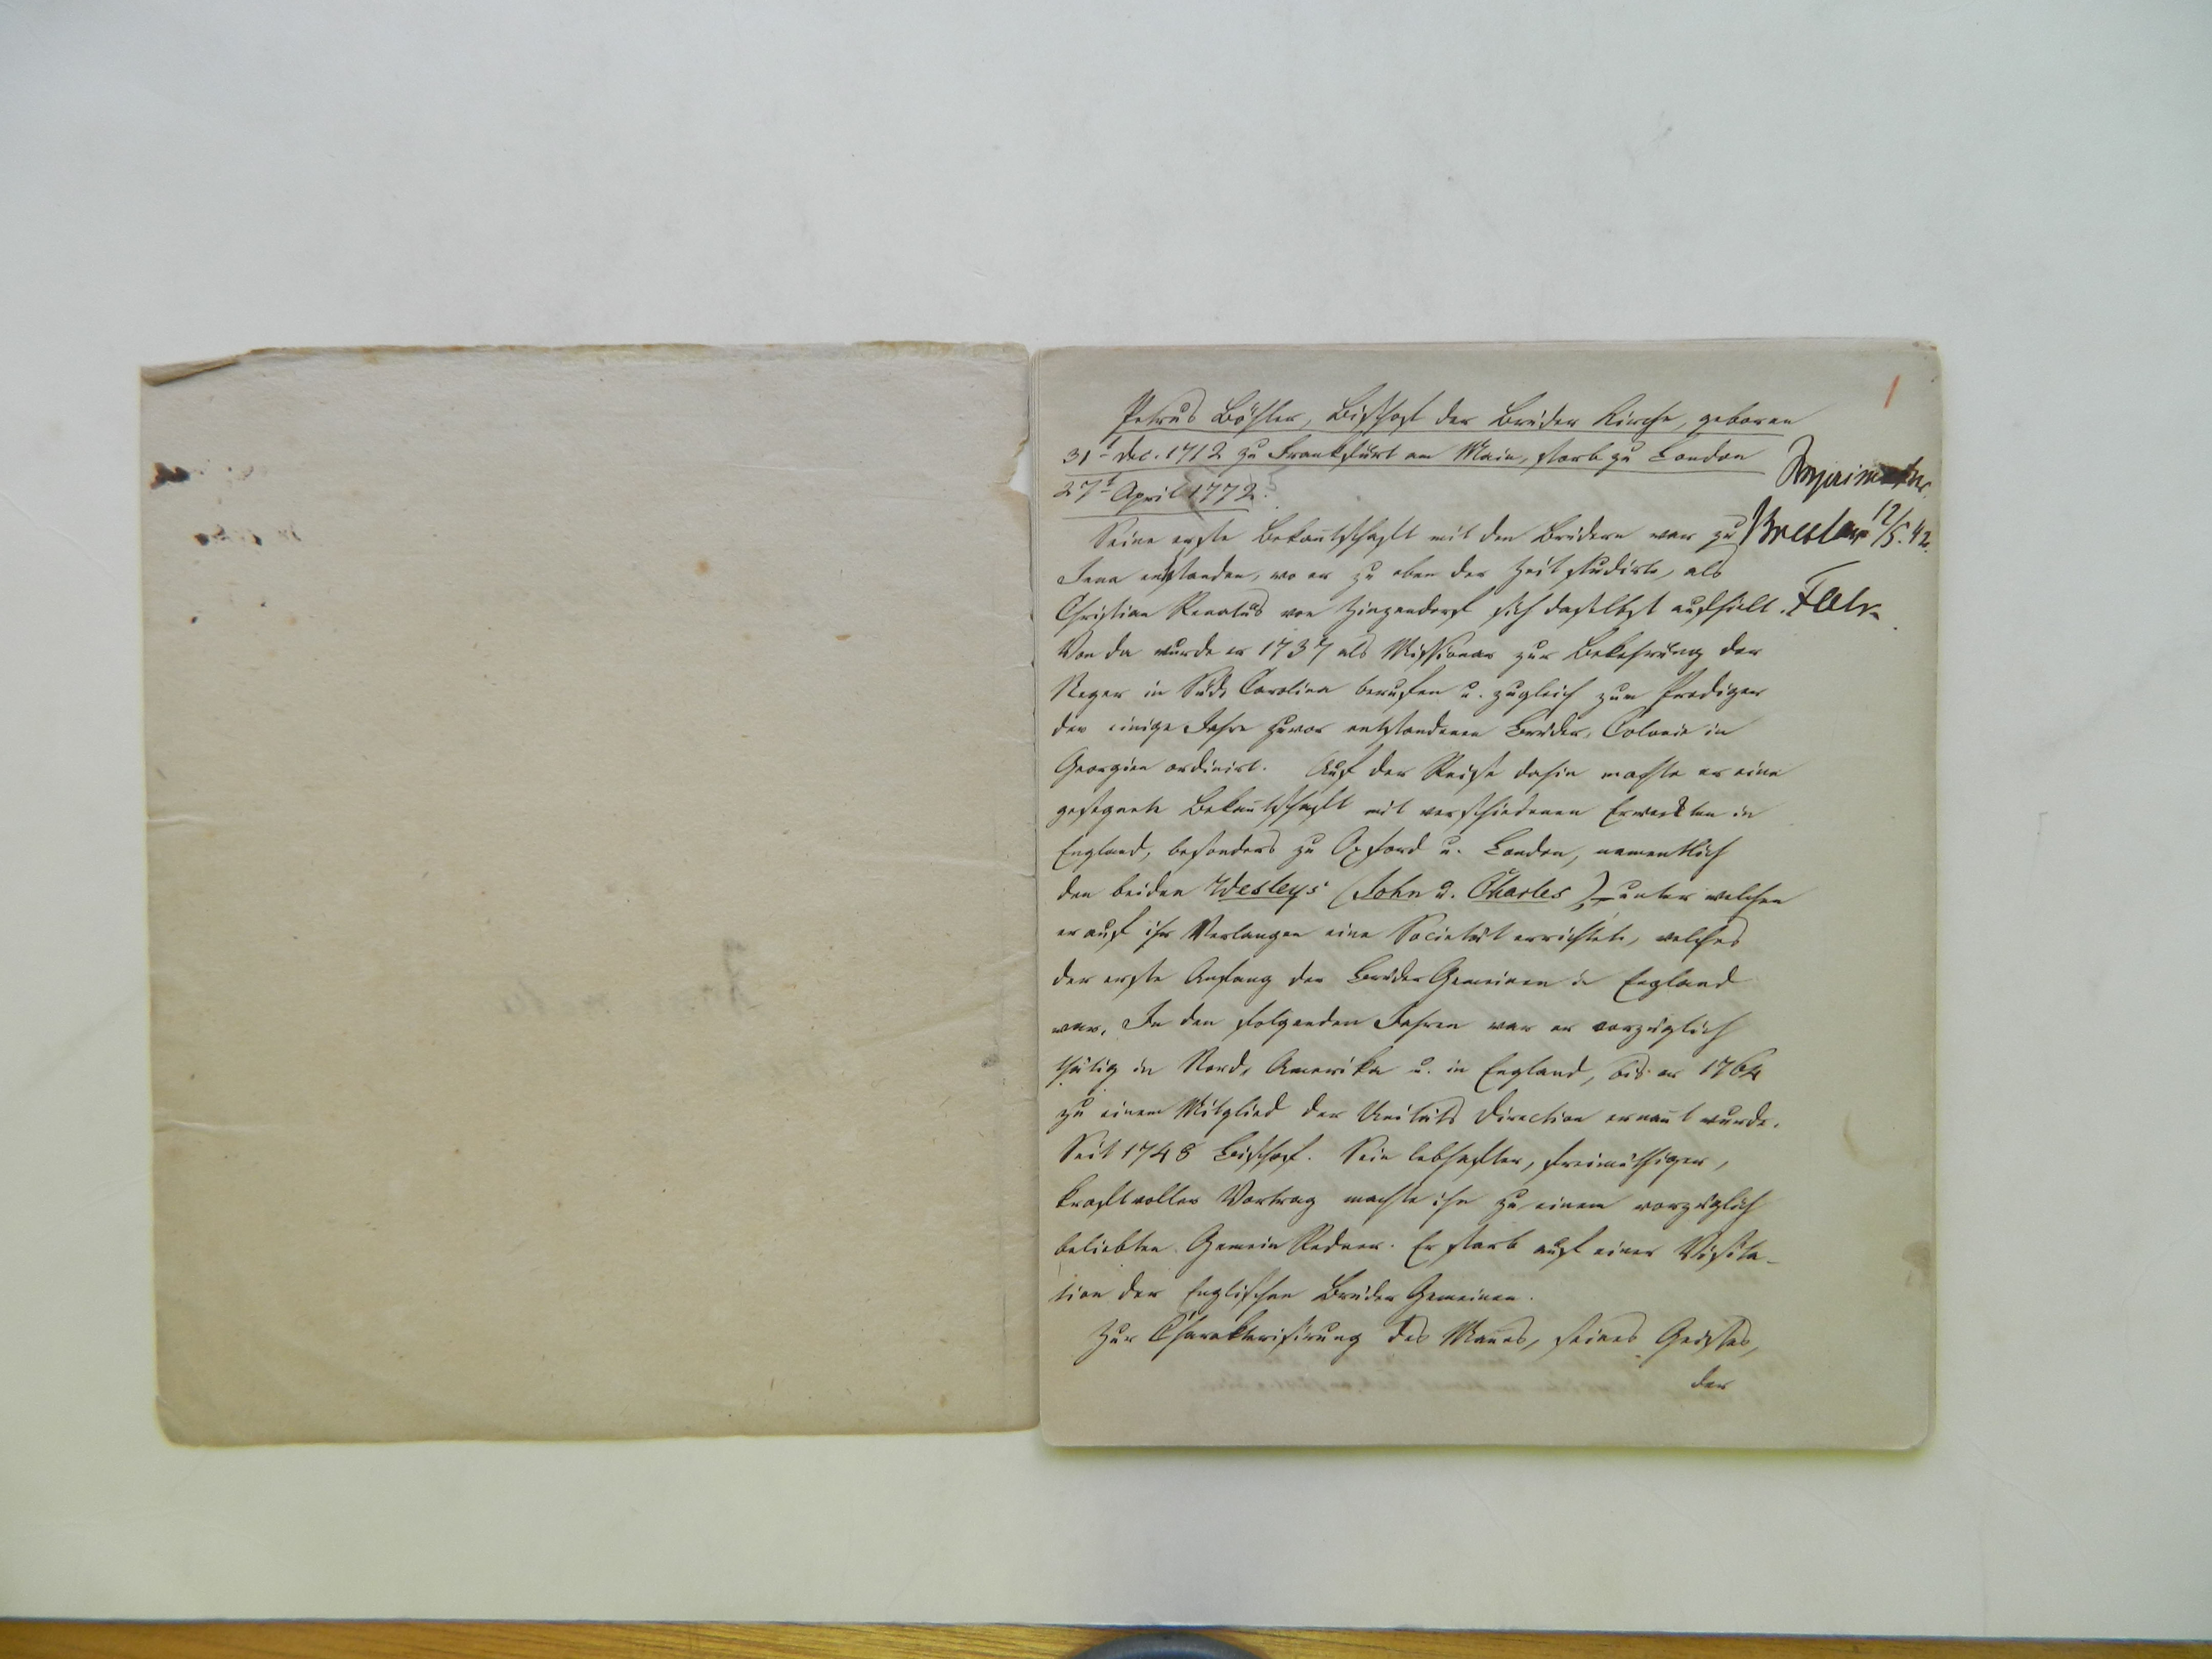 1
Petrus Böhler, Bischof der Brüder Kirche, geboren
31t Dec. 1712 zu Frankfurt am Main, starb zu London
27t April 1772.
Imprimatur
Breslau 12/5. 42.
Seine erste Bekan̄tschaft mit den Brüdern war zu
Jena entstanden, wo er zu eben der Zeit studirte, als
Christian Renatus von Zinzendorf sich daselbst aufhielt.
Von da wurde er 1737 als Missionar zur Bekehrung der
Neger in Süd Carolina berufen u. zugleich zum Prediger
der einige Jahre zuvor entstandenen Brüder, Colonie in
Georgien ordinirt. Auf der Reise dahin machte er eine
gesegnete Bekan̄tschaft mit verschiedenen Erweckten in
England, besonders zu Oxford u. London, namentlich
den beiden Wesleys (John u. Charles), unter welchen
er auf ihr Verlangen eine Societät errichtete, welches
der erste Anfang der Brüder Gemeinen in England
war. In den folgenden Jahren war er vorzüglich
thätig in Nord, Amerika u. in England, bis er 1764
zu einem Mitglied der Unitäts Direction ernan̄t wurde.
Seit 1748 Bischof. Sein lebhafter, freimüthiger,
kraftvoller Vortrag machte ihn zu einem vorzüglich
beliebten Gemein Redner. Er starb auf einer Visita-
tion der Englischen Brüder Gemeinen.
Zur Charakterisirung des Man̄es, seines Geistes,
der